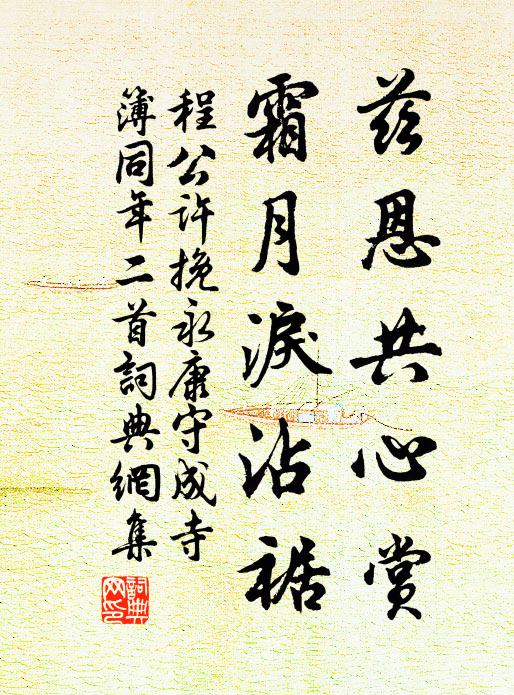 茲恩共心赏
霜月淚沾裾
程公许挽永康守成寺
簿同年二首詞典網集
詞典
网印